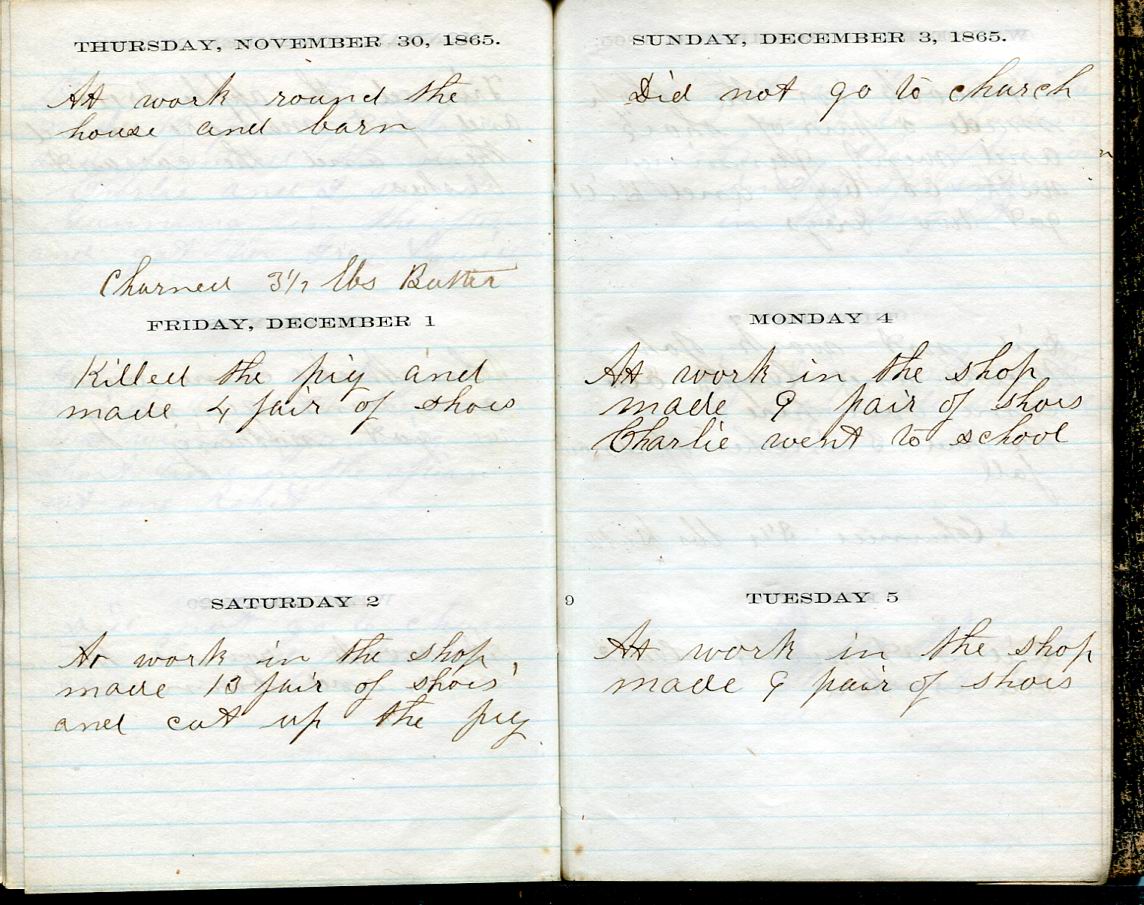 THURSDAY, NOVEMBER 30, 1865.
At work round the
house and barn
Churned 3 1/2 lbs Butter
FRIDAY, DECEMBER 1
Killed the pig and
made 4 pair of shoes
SATURDAY 2
At work in the shop,
made 13 pair of shoes
and cut up the pig
SUNDAY, DECEMBER 3, 1865.
Did not go to church
MONDAY 4
At work in the shop
made 9 pair of shoes
Charlie went to school
9
TUESDAY 5
At work in the shop
made 9 pair of shoes